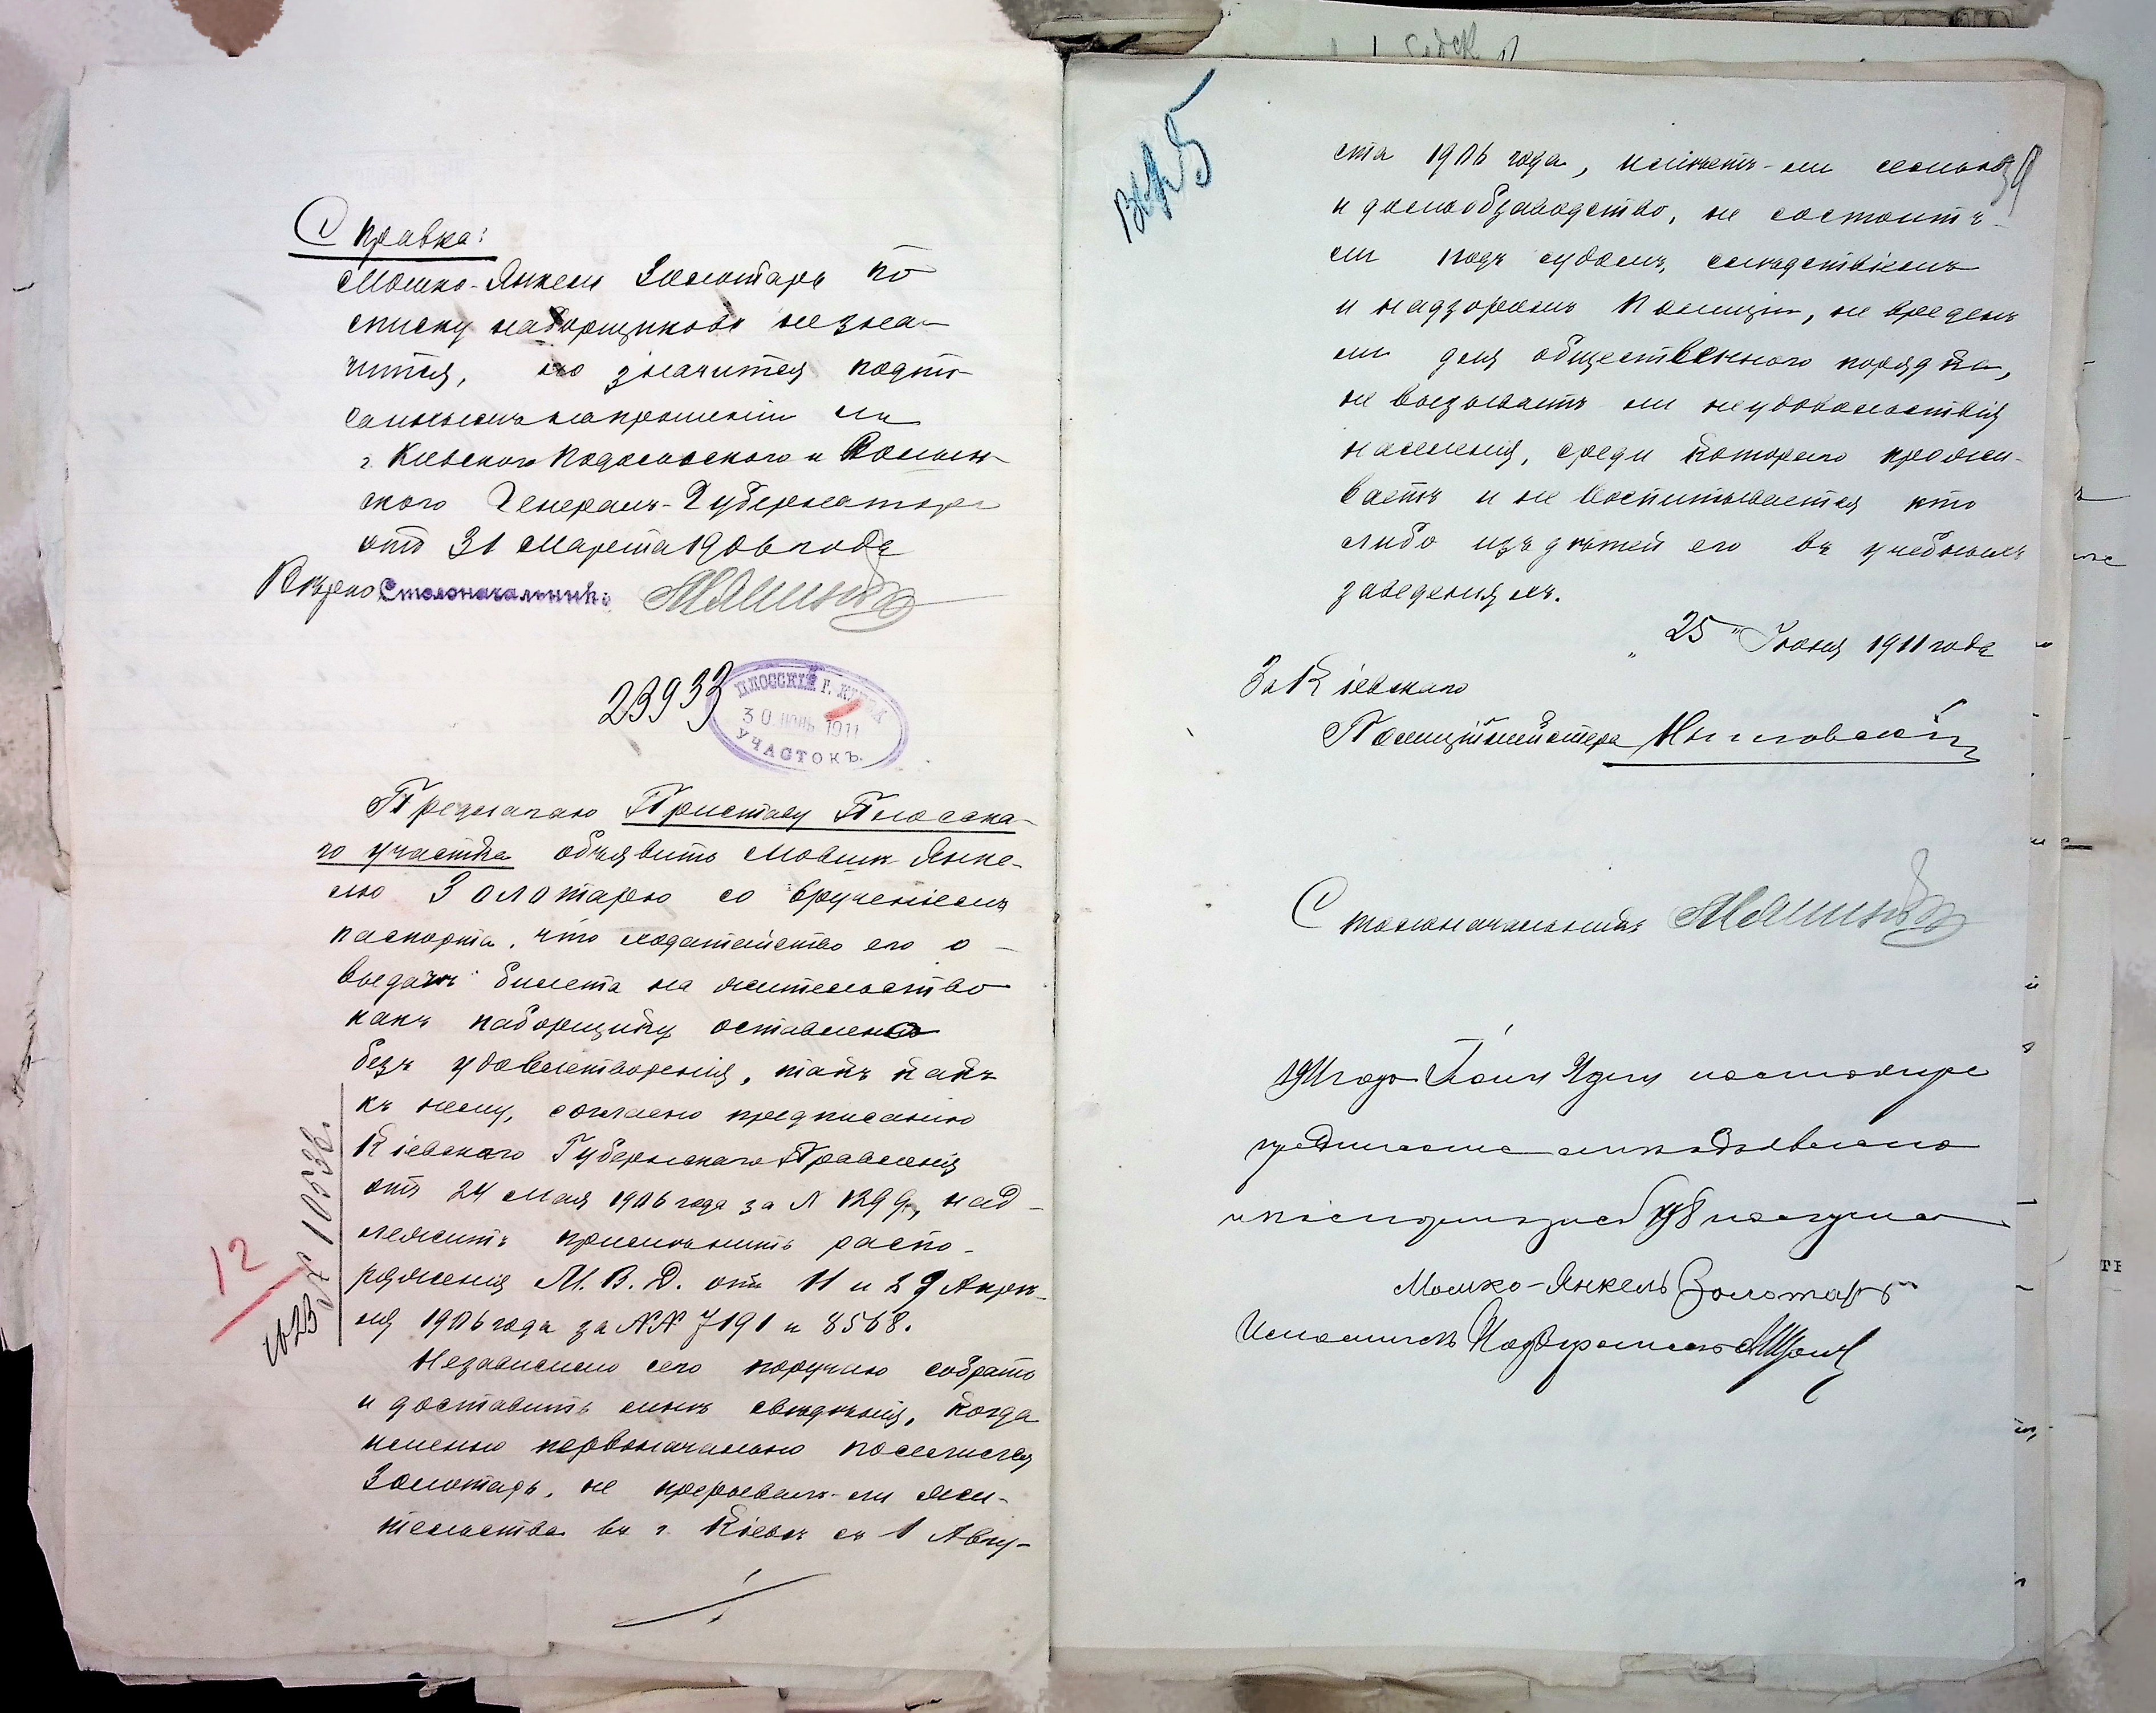 Справка:
Мошко-Янкель Золотарь по
списку наборщиковъ незна-
чится, но значится подпи-
саннымъ на прошеніи
г. Кіевскаго Подольскаго и Волын-
скаго Генералъ-Губернатора
отъ 31 Марта 1906 года
Вѣрно Столоначальникъ
23933
ПЛОССКІЙ Г. КІЕВА
30 ІЮНЬ 1911
УЧАСТОКЪ.
Предлагаю Приставу Плосска-
го участка объявить Мовшѣ Янке-
лю Золотарю со врученіемъ
паспорта, что ходатайство его о
выдачѣ билета на жительство
какъ наборщику оставлено
безъ удовлетворенія, такъ какъ
къ нему, согласно предписанію
Кіевскаго Губернскаго Правленія
отъ 24 Мая 1906 года за N 1299, над-
лежитъ примѣнить распо-
ряженія М. В. Д. отъ 11 и 29 Апрѣ-
ля 1906 года за NN 7191 и 8568.
Независимо сего поручаю собрать
и доставить мнѣ свѣдѣнія, когда
именно первоначально поселился
Золотарь, не прерывалъ-ли жи-
тельства въ г. Кіевѣ съ 1 Авгу-
12
N 10538.
ста 1906 года, имѣетъ-ли семью
и домообзаводство, не состоитъ-
ли подъ судомъ, слѣдствіемъ
и надзоромъ Полиціи, не вреденъ
ли для общественнаго порядка,
не вызываетъ ли неудовольствія
населенія, среди котораго прожи-
ваетъ и не воспитывается кто
либо изъ дѣтей его въ учебныхъ
заведеніяхъ.
"25" Іюня 1911 года
За Кіевскаго
Полиціймейстера
Столоначальникъ
1911 года Іюля дня настоящее
предписание мнѣ объявлено
и паспортъ за 198 получилъ
Мошко-Янкель Золотарь